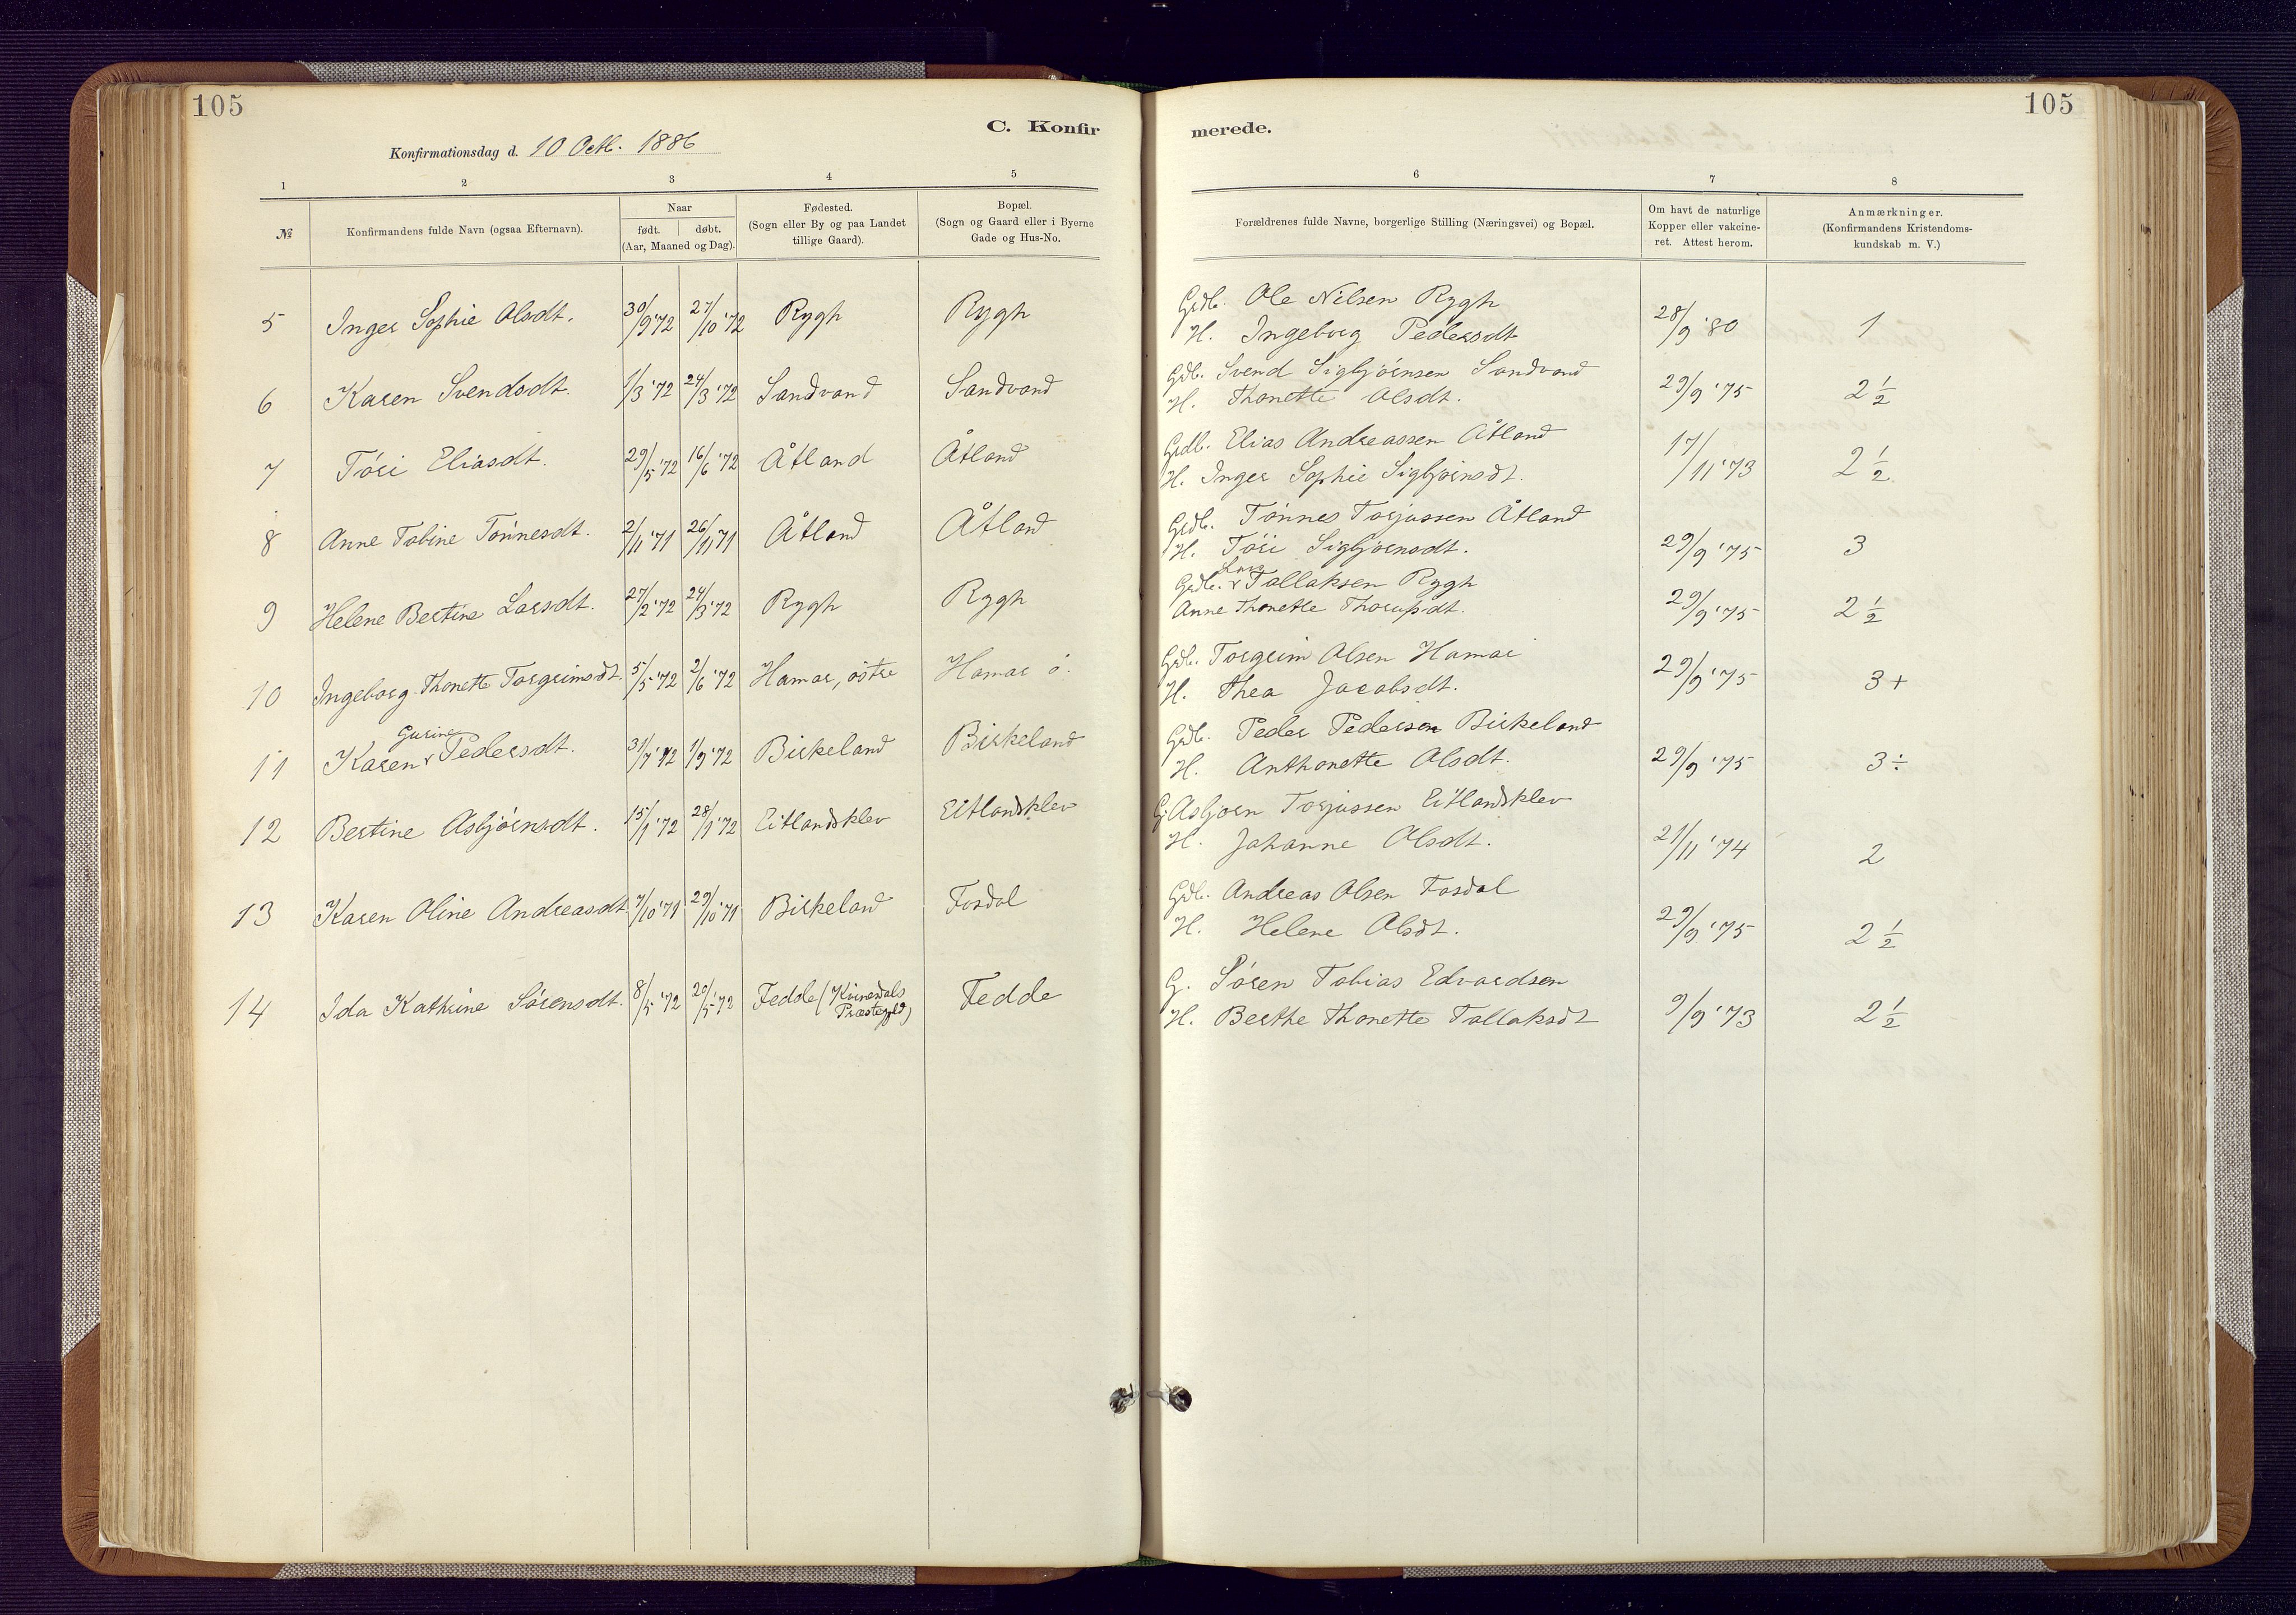 105
105
C. Konfir
merede.
Konfirmationsdag d. 10 Octb. 1886
1 2 3 4 5 6 7 8
№
Konfirmandens fulde Navn (ogsaa Efternavn).
Naar
født. døbt.
(Aar, Maaned og Dag).
Fødested.
(Sogn eller By og paa Landet
tillige Gaard).
Bopæl.
(Sogn og Gaard eller i Byerne
Gade og Hus-No.
Forældrenes fulde Navne, borgerlige Stilling (Næringsvei) og Bopæl.
Om havt de naturlige
Kopper eller vakcine-
ret. Attest herom.
Anmærkninger.
(Konfirmandens Kristendoms-
kundskab m. V.)
5 Inger Sophie Olsdt. 30/9 '72 27/10 '72 Rygh Rygh
Grdb. Ole Nilsen Rygh
H. Ingeborg Pedersdt 28/9 '80 1
6 Karen Svendsdt. 1/3 '72 24/3 '72 Sandvand Sandvand
Gdb. Svend Sigbjørnsen Sandvand
H. Thonette Olsdt. 29/9 '75 2 1/2
7 Töri Eliasdt. 29/5 '72 16/6 '72 Åtland Åtland
Grdb. Elias Andreassen Åtland
H. Inger Sophie Sigbjørnsdt. 17/11 '73 2 1/2
8 Anne Tobine Tönnesdt. 2/11 '71 26/11 '71 Åtland Åtland
Grdb. Tönnes Torjussen Åtland
H. Töri Sigbjørnsdt. 29/9 '75 3
9 Helene Bertine Larsdt. 27/2 '72 24/3 '72 Rygh Rygh
Lars
Grdb. v Tollaksen Rygh
Anne Thonette Thorupsdt. 29/9 '75 2 1/2
10 Ingeborg Thonette Torgrimsdt. 5/5 '72 2/6 '72 Hamar, östre Hamar ö.
Grdb. Torgrim Olsen Hamar
H. Thea Jacobsdt. 29/9 '75 3 +
Gurine
11 Karen v Pedersdt. 31/7 '72 1/9 '72 Birkeland Birkeland
Grdb. Peder Pedersen Birkeland
H. Anthonette Olsdt. 29/9 '75 3 ÷
12 Bertine Asbjörnsdt. 15/1 '72 28/1 '72 Eitlandsklev Eitlandsklev
G. Asbjørn Torjussen Eitlandsklev
H. Johanne Olsdt. 21/11 '74 2
13 Karen Oline Andreasdt. 7/10 '71 29/10 '71 Birkeland Fosdal
Grdb. Andreas Olsen Fosdal
H. Helene Olsdt. 29/9 '75 2 1/2
14 Ida Kathrine Sörensdt. 8/5 '72 20/5 '72 Fedde (Kvinesdals
Præstegjeld) Fedde
G. Sören Tobias Edvardsen
H. Berthe Thonette Tollaksdt 9/9 '73 2 1/2